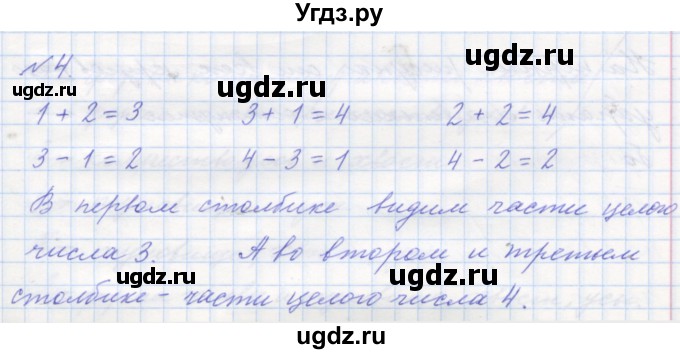 Угдз.ру
№ 4.
1 + 2 = 3 3 + 1 = 4 2 + 2 = 4
3 - 1 = 2 4 - 3 = 1 4 - 2 = 2
В первом столбике видим части целого
числа 3. А во втором и третьем
столбике - части целого числа 4.
ugdz.ru ugdz.ru ugdz.ru
ugdz.ru ugdz.ru
ugdz.ru ugdz.ru